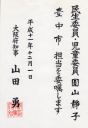 民生委員・児童委員 園山 静子
豊中市 担当を委嘱します
平成十一年十二月一日
大阪府知事
山田 勇